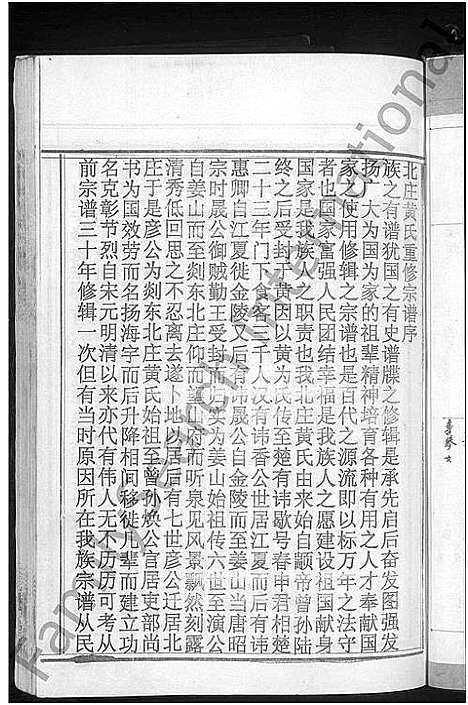 北庄黄氏重修宗谱序
族之有谱犹国之有史谱牒之修辑是承先启后奋发图强发
扬广大为国为家的祖辈精神培育各种有用之人才奉献国
家之使用修辑之宗谱也是百代之源流即以标万年之法守
者也国家富强人民团结幸福是我族人之愿建设祖国献身
国家是我族人之职责也我北庄黄氏由来始自颛帝曾孙陆
终之后受封于黄因以黄为氏传至楚有讳歇号春申君相楚
二十三年门下食客三千人汉有讳香公世居江夏而后有讳
惠卿自江夏徙金陵又后有讳晟公自金陵而至姜山当唐昭
宗时晟公御贼勤王受封而归妥为姜山始祖传六世至演公
自姜山而至剡东北庄仰而望山府而听泉见风景飘然刻露
清秀低回思之不忍离去遂卜地以居后有七世彦公迁居北
庄于是彦公为剡东北庄黄氏始祖至曾孙焕公官居吏部尚
书为国效劳而名扬海宇而后升降相间移徙几辈而建立功
名克彰节烈自宋元明清以来亦代有伟人无不历历可考从
前宗谱三十年修辑一次但有当时原因所在我族宗谱从民
Family Search International